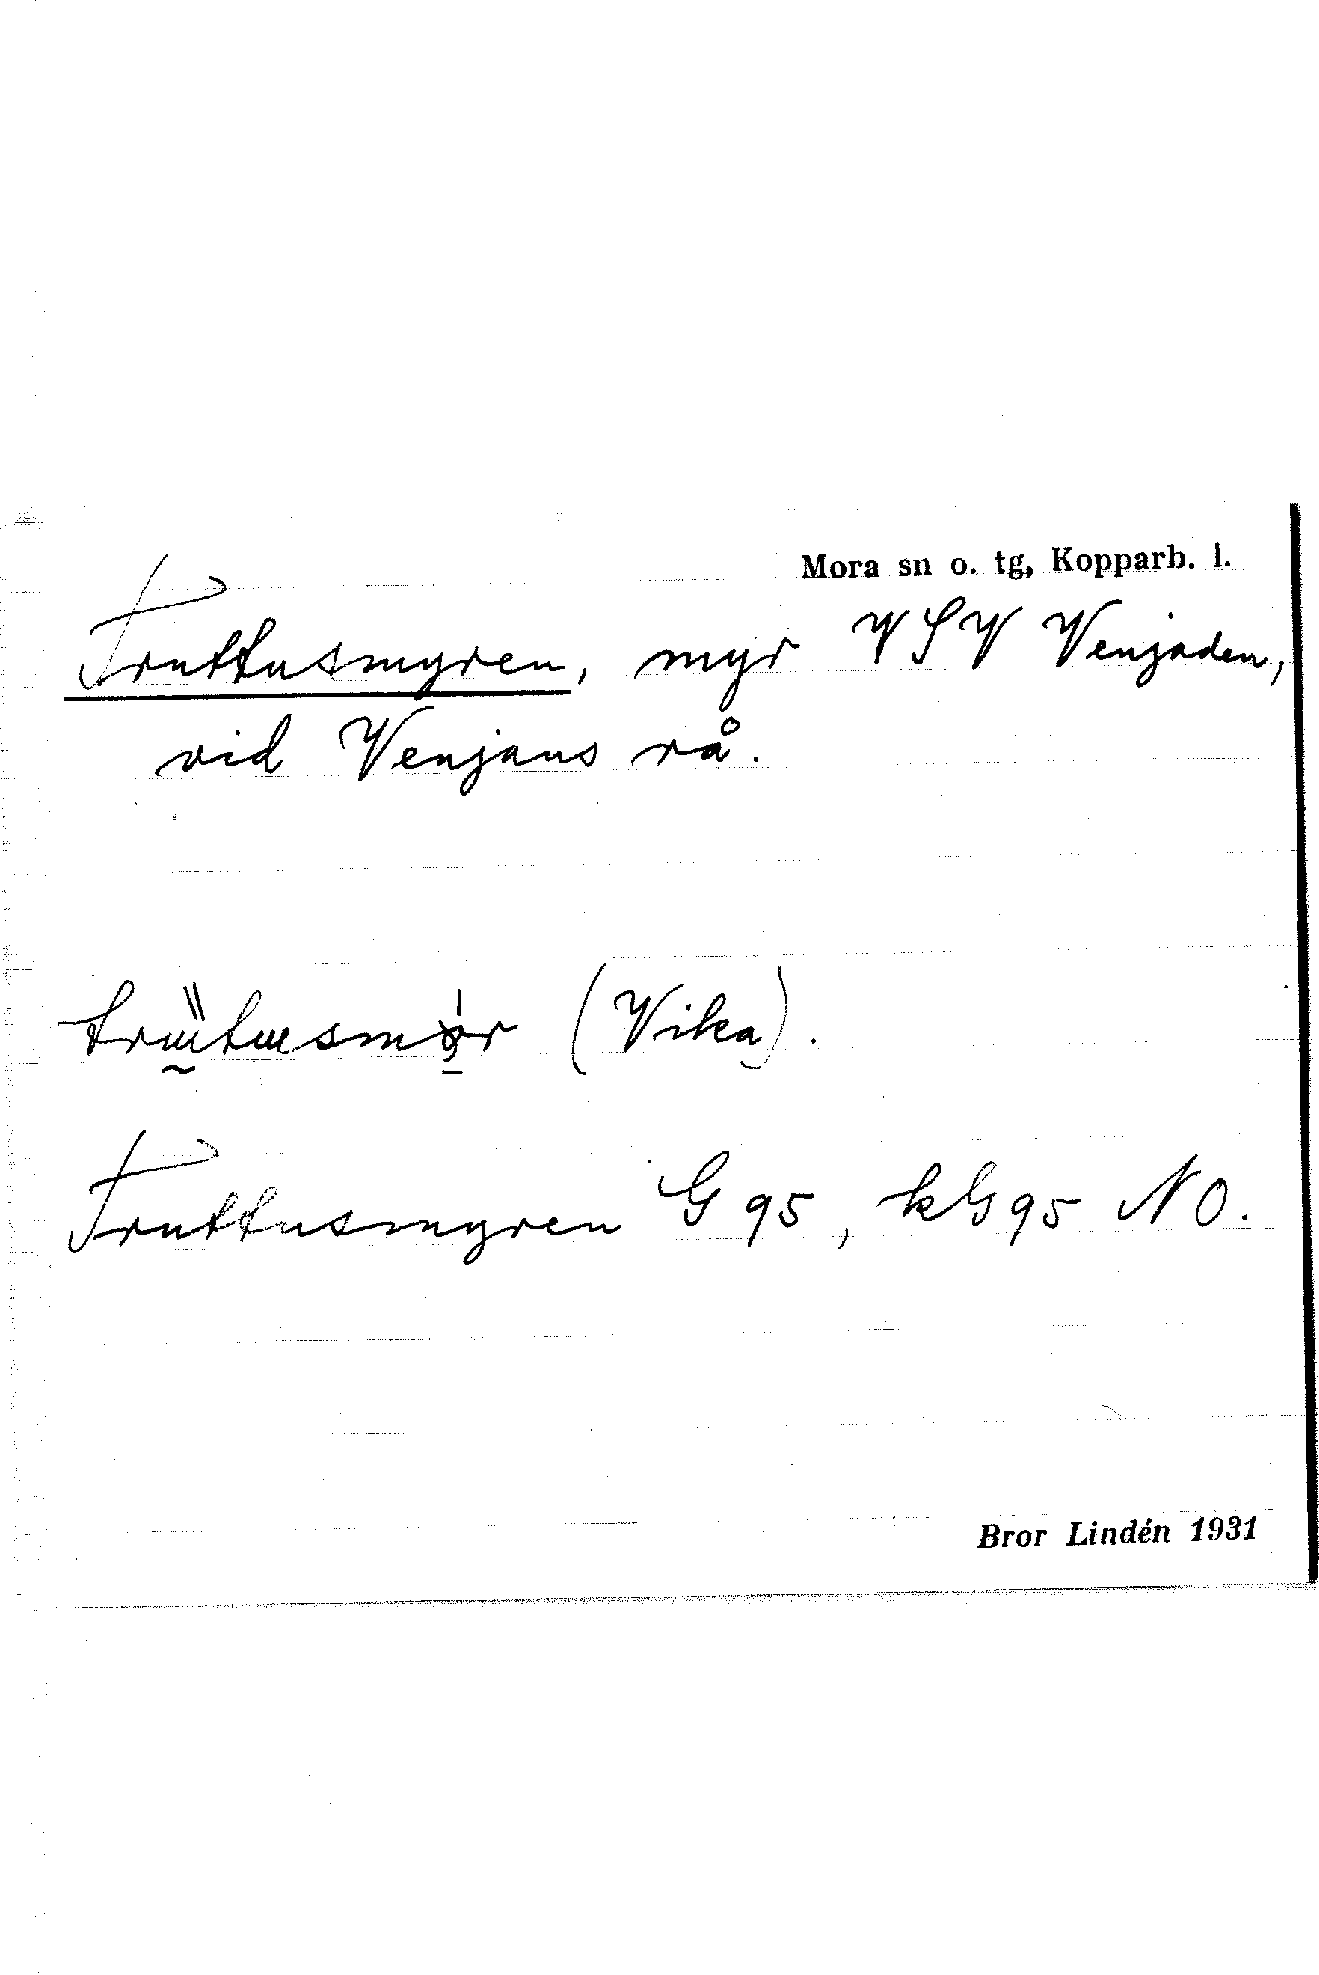 Mora sn o. tg, Kopparb. l.
Truttusmyren, myr VSV Venjaden,
vid Venjans rå.
(Vika).
Truttusmyren G 95, kG 95 NO.
Bror Lindén 1931